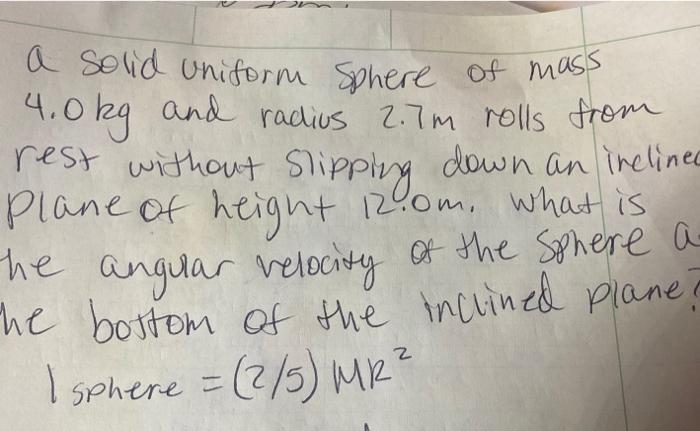 a solid uniform sphere of mass
4.0 kg and radius 2.7m rolls from
rest without slipping down an incline
plane of height 12.0m. what is
he angular velocity of the sphere a
he bottom of the inclined plane?
I sphere = (2/5) MR²